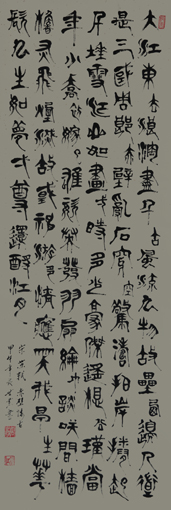 大江東去浪淘盡千古風流人物故壘西邊人道
是三國周郎赤壁亂石穿空驚濤拍岸捲起
千堆雪江山如畫一時多少豪傑遙想公瑾當
年小喬初嫁了雄姿英發羽扇綸巾談笑間檣
櫓灰飛煙滅故國神遊多情應笑我早生華
髮人生如夢一尊還酹江月
宋蘇軾赤壁懷古